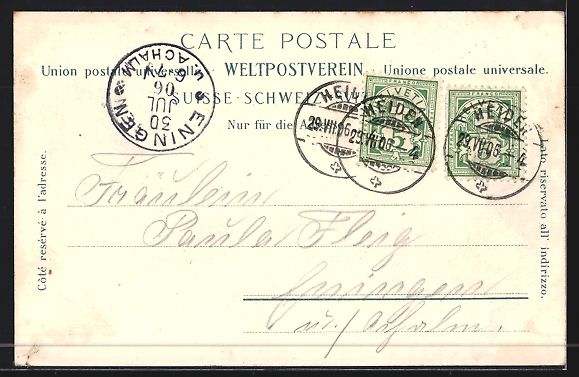 CARTE POSTALE
Union postale universelle. WELTPOSTVEREIN. Unione postale universale.
SUISSE. SCHWEIZ.
Nur für die
ENINGEN
U. ACHALM
30
JUL
06
HEIDEN
29.VII.06
HEIDEN
29.VII.06 4
HEIDEN
29.VII.06 4
Côté reservé à l'adresse.
riservato all' indirizzo.
Fräulein
Paula Fleig
Eningen
u./Achalm.